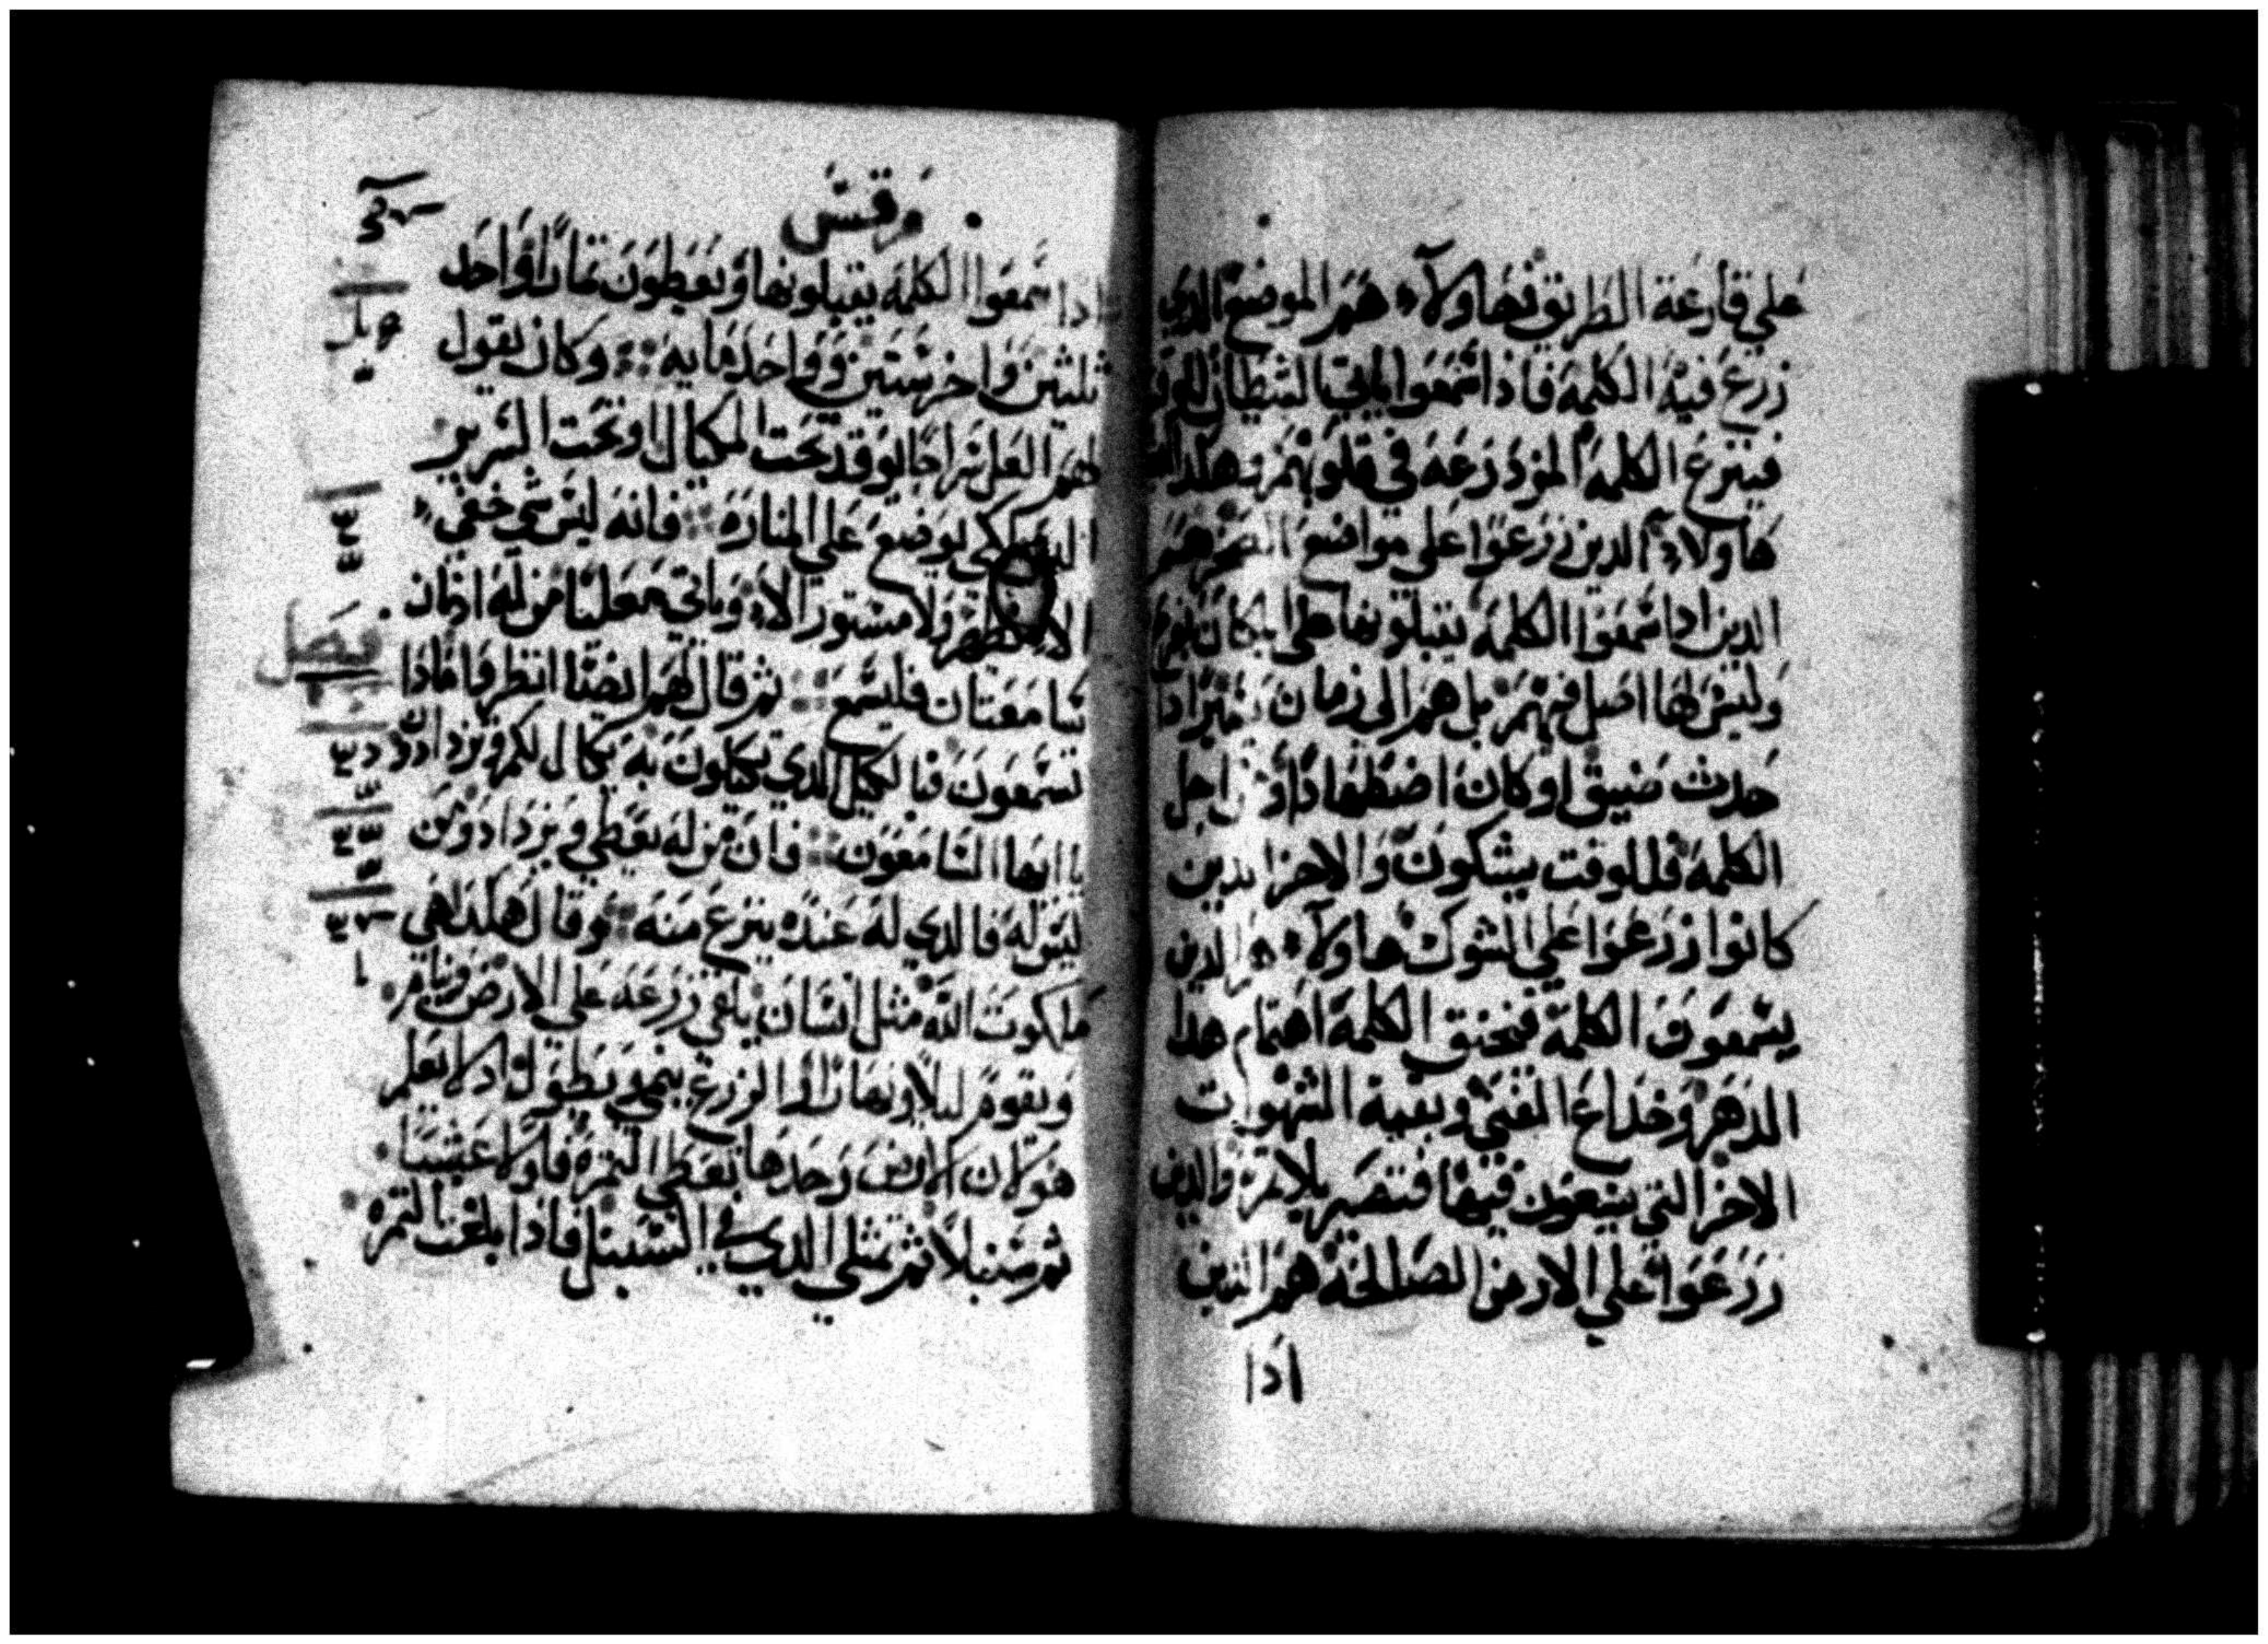 علي قارعة الطريق فهاولآء هم الموضع الدي
زرع فيه الكلمة فاذا سمعوا ياتي الشيطان للوقت
فينزع الكلمة المزدرعه في قلوبهم
هاولاء الدين زرعوا علي مواضع الصخر هم
الدين ادا سمعوا الكلمة يتبلونها علي المكان بفرح
وليس لها اصل فيهم بل هم الي زمان ثم ادا
حدث ضيق او كان اضطهادا من اجل
الكلمة فللوقت يشكون والاخر ايدين
كانوا زرعوا علي الشوك هاولآء هم الدين
يسمعون الكلمة فتخنق الكلمة اهتمام هدا
الدهر وخداع الغني وبقية الشهوات
الاخر التي يتبعون فيها فتصير بلا ثمر والدين
زرعوا علي الارض الصالحة هم الدين
ادا
مرقس
ادا سمعوا الكلمة يقبلونها ويعطون ثمارا واحد
ثلثين واخر ستين وواحد مايه وكان يقول
لهم العل سراجا يوقد تحت المكيال او تحت السرير
اليس لكي يوضع علي المنارة فانه ليس شي خفي
الا يظهر ولا مستور الا وياتي معلنا من له ادنان
سامعتان فليسمع ثم قال لهم ايضا انظروا مادا
تسمعون فبالكيل الدي تكيلون به يكال لكم ويزدادون
يا ايها السامعون فان من له يعطي ويزداد ومن
ليس له فالدي له عنده ينزع منه وقال هكدا هي
ملكوت الله مثل انسان يلقي زرعه علي الارض وينام
ويقوم ليلا ونهارا والزرع ينمو ويطول وهو لا يعلم
هو لان الارض وحدها تعطي الثمرة فاولا عشبا
ثم سنبلا ثم يمتلي الدي في السنبل فاذا بلغت الثمره
فصل